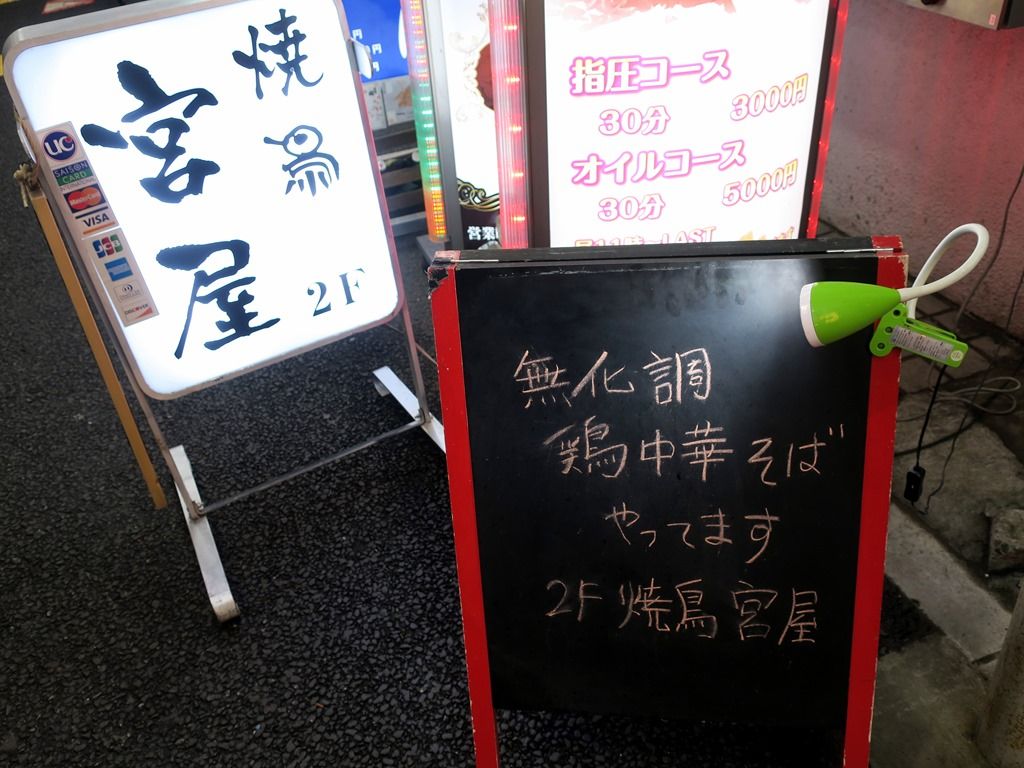 焼鳥
宮屋
2F
UC
SAISON
CARD
INTERNATIONAL
MasterCard
VISA
JCB
DISCOVER
指圧コース
30分 3000円
オイルコース
30分 5000円
営業
無化調
鶏中華そば
やってます
2F 焼鳥 宮屋